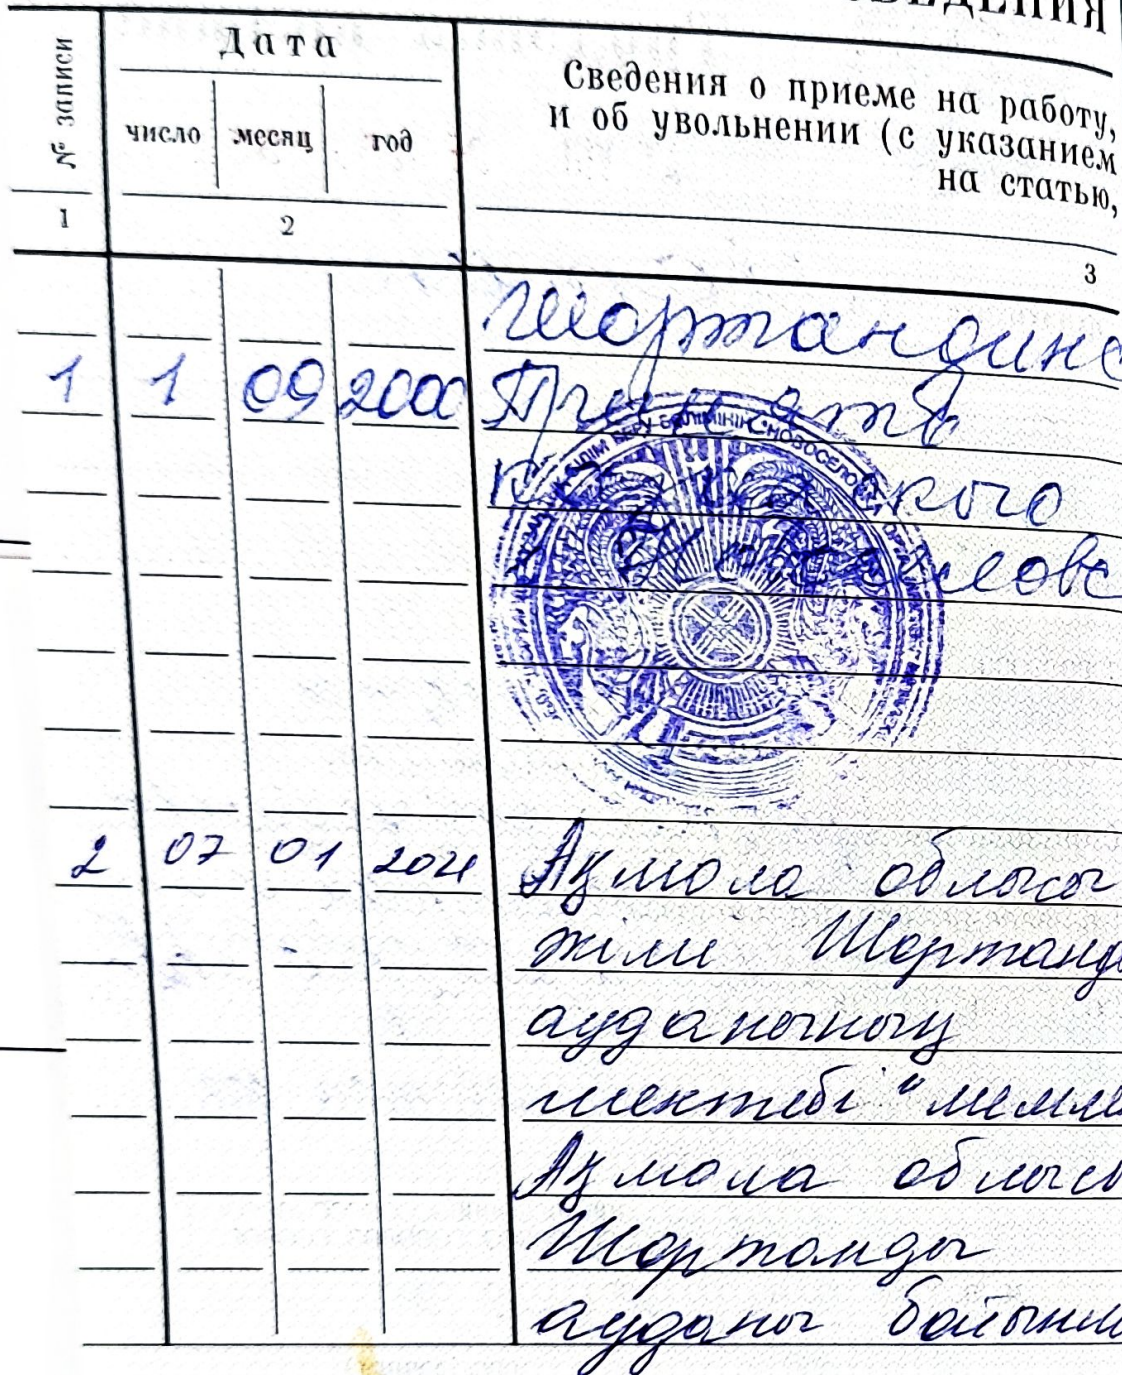 ВЕДЕНИЯ
№ записи
Дата
число месяц год
Сведения о приеме на работу,
и об увольнении (с указанием
на статью,
1 2 3
Шортандинс
1 1 09 2000 Принята
кого
ловс
2 07 01 2021 Ақмола облысы
жілі Шортанды
ауданының
мектебі " мемле
Ақмола облысы
Шортанды
ауданы бойынша